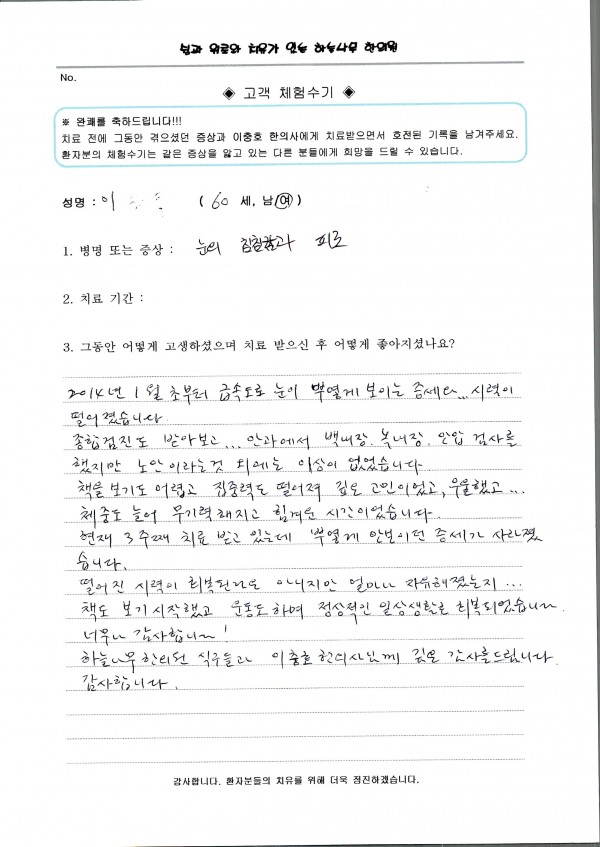 위로와 치유가 있는 하늘나무 한의원
No.
◈ 고객 체험수기 ◈
※ 완쾌를 축하드립니다!!!
치료 전에 그동안 겪으셨던 증상과 이충호 한의사에게 치료받으면서 호전된 기록을 남겨주세요.
환자분의 체험수기는 같은 증상을 앓고 있는 다른 분들에게 희망을 드릴 수 있습니다.
성명 : 이 ( 60 세, 남 여 )
1. 병명 또는 증상 : 눈의 침침함과 피로
2. 치료 기간 :
3. 그동안 어떻게 고생하셨으며 치료 받으신 후 어떻게 좋아지셨나요?
2014년 1월 초부터 급속도로 눈이 뿌옇게 보이는 증세와... 시력이
떨어졌습니다.
종합검진도 받아보고... 안과에서 백내장. 녹내장. 안압 검사를
했지만 노안이라는것 외에는 이상이 없었습니다.
책을 보기도 어렵고 집중력도 떨어져 깊은 고민이었고, 우울했고...
체중도 늘어 무기력해지고 힘겨운 시간이었습니다.
현재 3주째 치료 받고 있는데 뿌옇게 안보이던 증세가 사라졌
습니다.
떨어진 시력이 회복된다은 아니지만 얼마나 자유해졌는지...
책도 보기 시작했고 운동도 하며 정상적인 일상생활로 회복되었습니다.
너무나 감사합니다!
하늘나무 한의원 식구들과 이충호 한의사님께 깊은 감사를드립니다.
감사합니다.
감사합니다. 환자분들의 치유를 위해 더욱 정진하겠습니다.